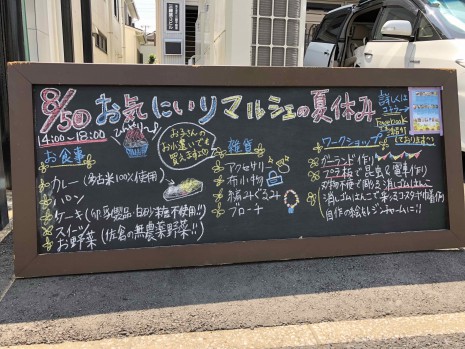 8/5㊐ お気にいりマルシェの夏休み
14:00~18:00
ひんやり〜♪
お子さんの
お小遣いでも
買える本も
詳しくは
コチラ
facebook
しております
お食事
カレー（多古米100%使用）
パン
ケーキ（卵乳製品・白砂糖不使用!!）
スイーツ
お野菜（佐倉の無農薬野菜!!）
雑貨
アクセサリー
布小物
編みぐるみ
ブローチ
ワークショップ
ガーランド作り
プラ板で昆虫&電車作り
刃物不使で彫る消しゴムはんこ
消しゴムはんこで作るコースター(巾着)作り
自作の絵をレジンチャームに!!